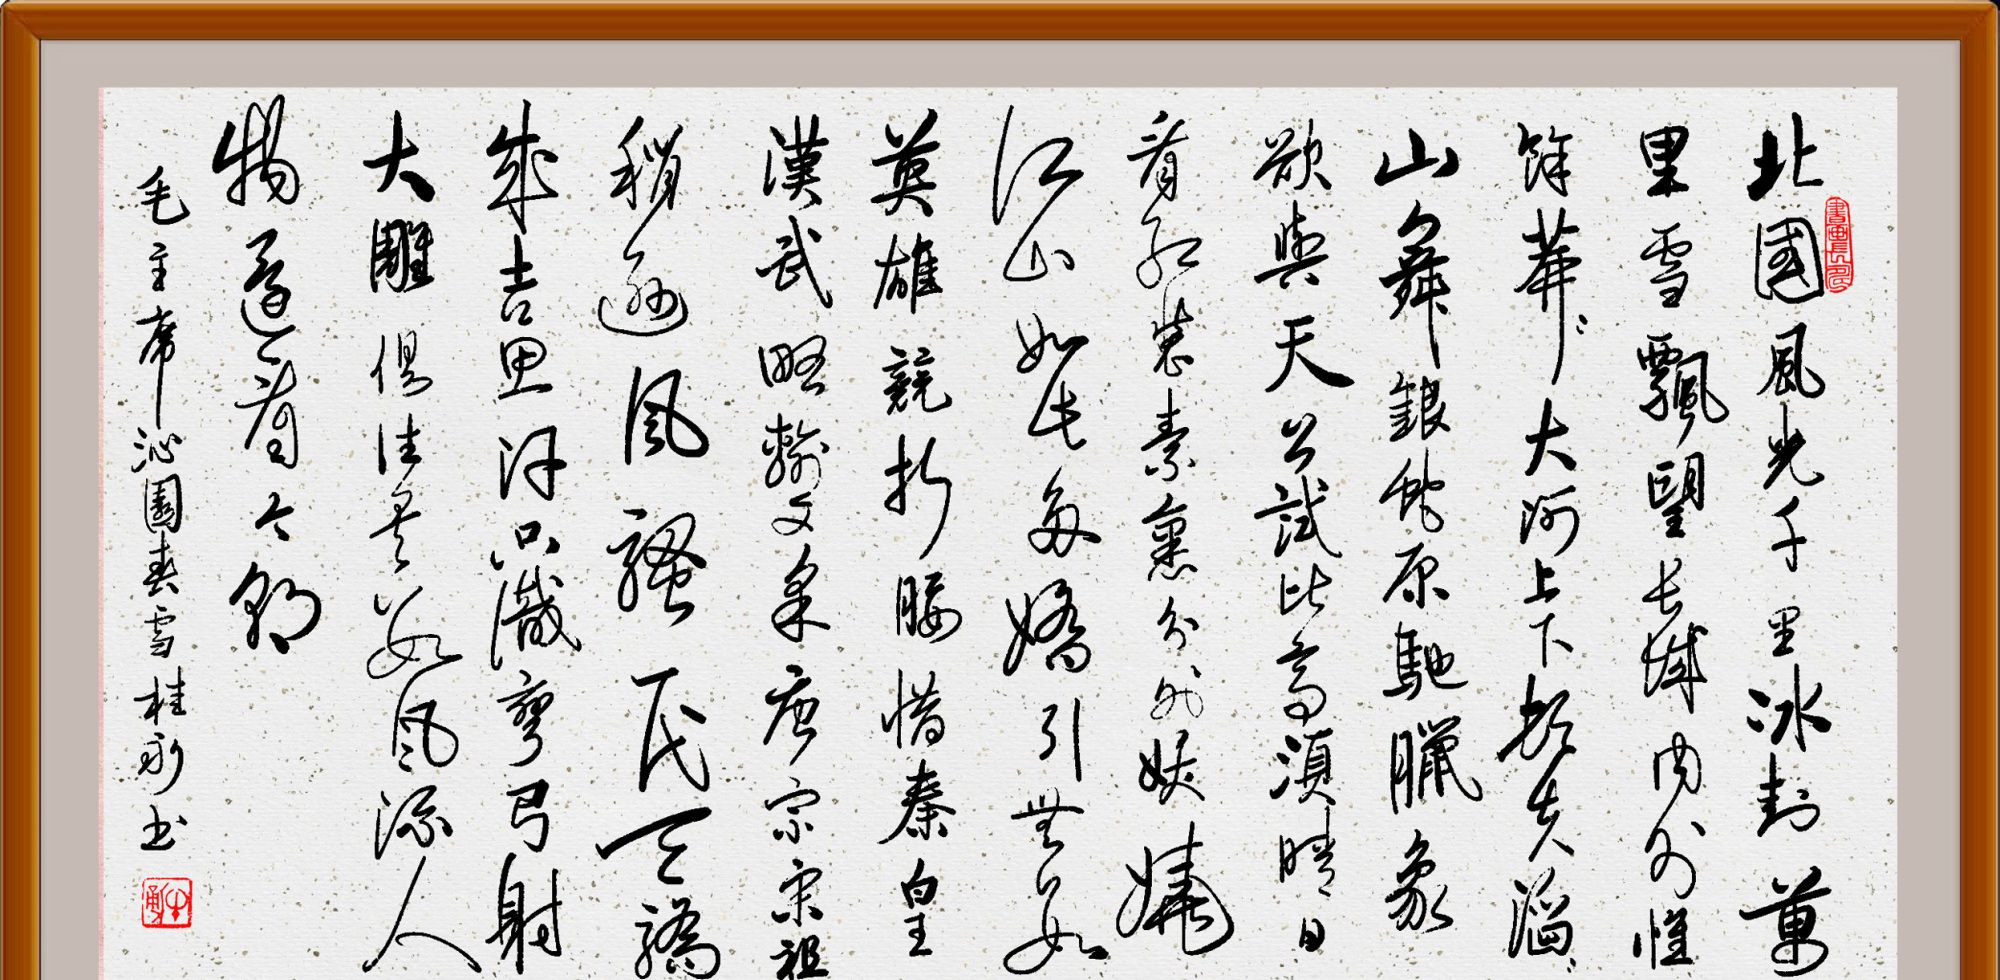 北國風光千里冰封萬
里雪飄望長城内外惟
餘莽〻大河上下頓失滔〻
山舞銀蛇原馳臘象
欲與天公試比高須晴日
看紅裝素裹分外妖嬈
江山如此多嬌引無數
英雄競折腰惜秦皇
漢武略輸文采唐宗宋祖
稍遜風騷一代天驕
成吉思汗只識彎弓射
大雕俱往矣數風流人
物還看今朝
毛主席沁園春雪桂书